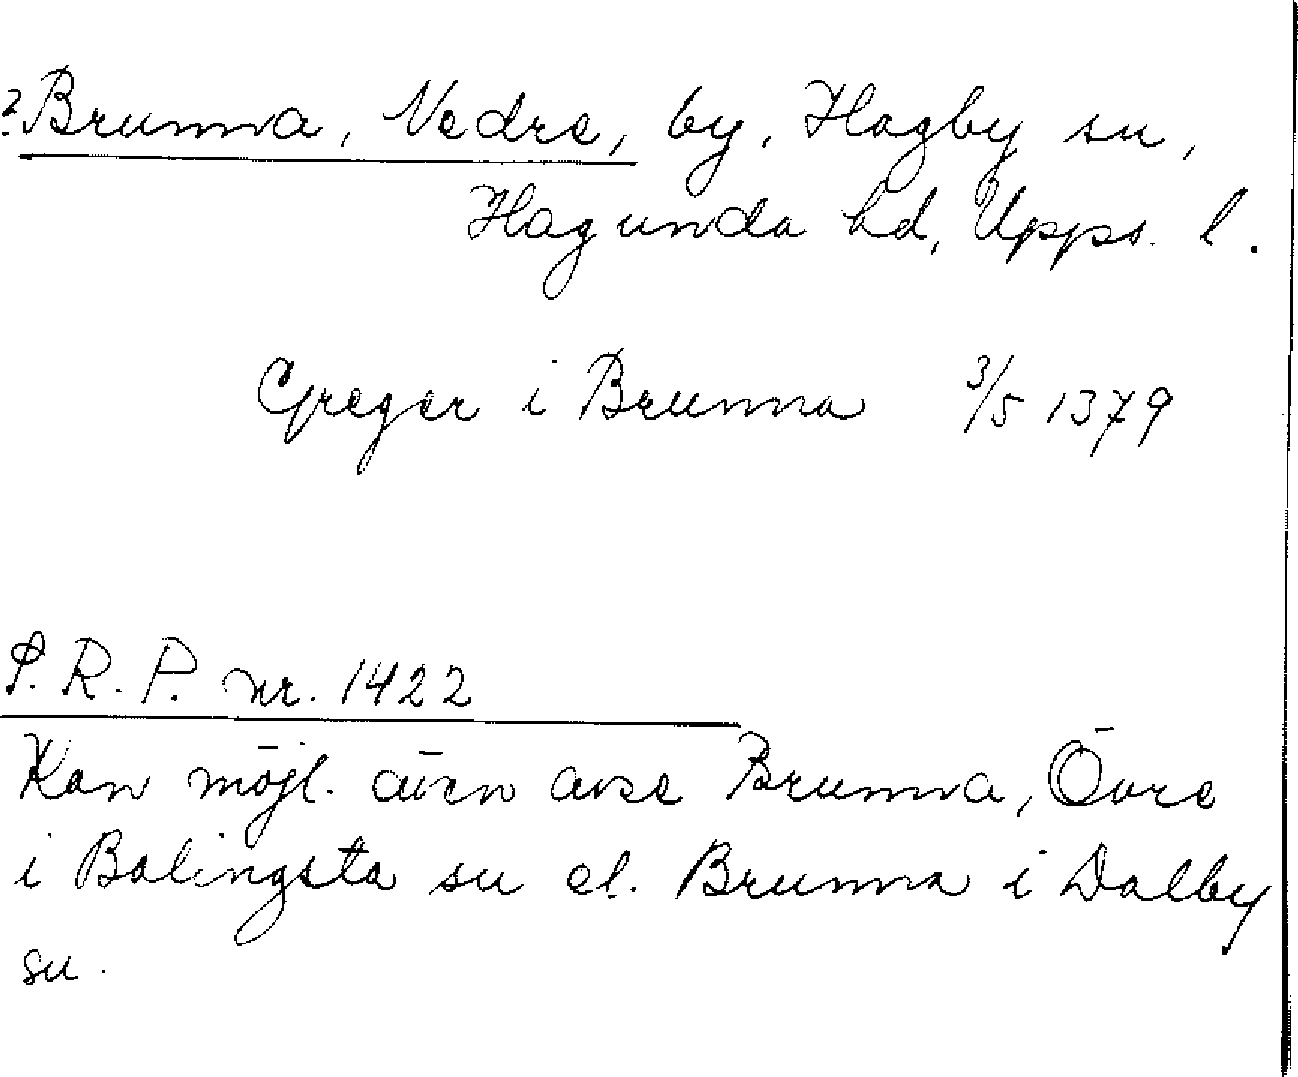 ? Brunna, Nedre, by, Hagby sn,
Hagunda hd, Upps. l.
Greger i Brunna 3/5 1379
S. R. P. nr. 1422
Kan möjl. även avse Brunna, Övre
i Balingsta sn el. Brunna i Dalby
sn.